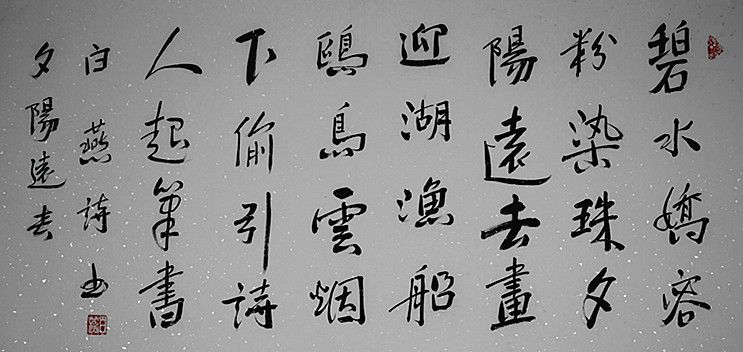 碧水嬌容
粉染珠夕
陽遠去畫
迎湖漁船
鷗鳥雲烟
下偷引詩
人起筆書
白燕詩書
夕陽遠去